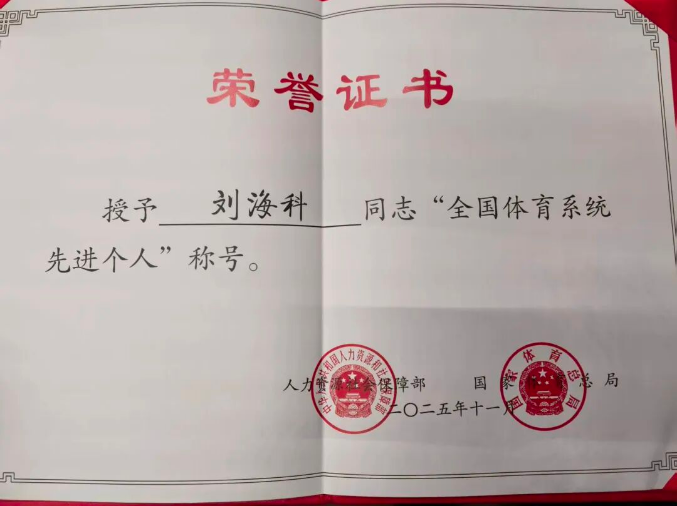 荣誉证书
授予 刘海科 同志“全国体育系统
先进个人”称号。
人力资源社会保障部 国家体育总局
二〇二五年十一月
中华人民共和国人力资源和社会保障部
国家体育总局